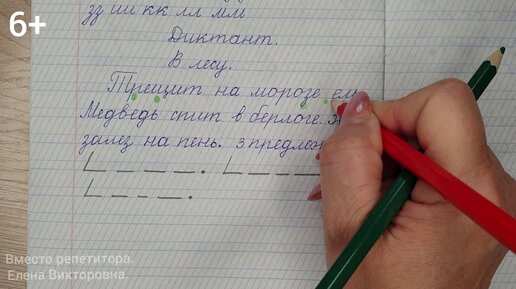 6+
зз ии кк лл мм
Диктант.
В лесу.
Трещит на морозе ель.
Медведь спит в берлоге.
залез на пень. 3 предлож
Вместо репетитора.
Елена Викторовна.